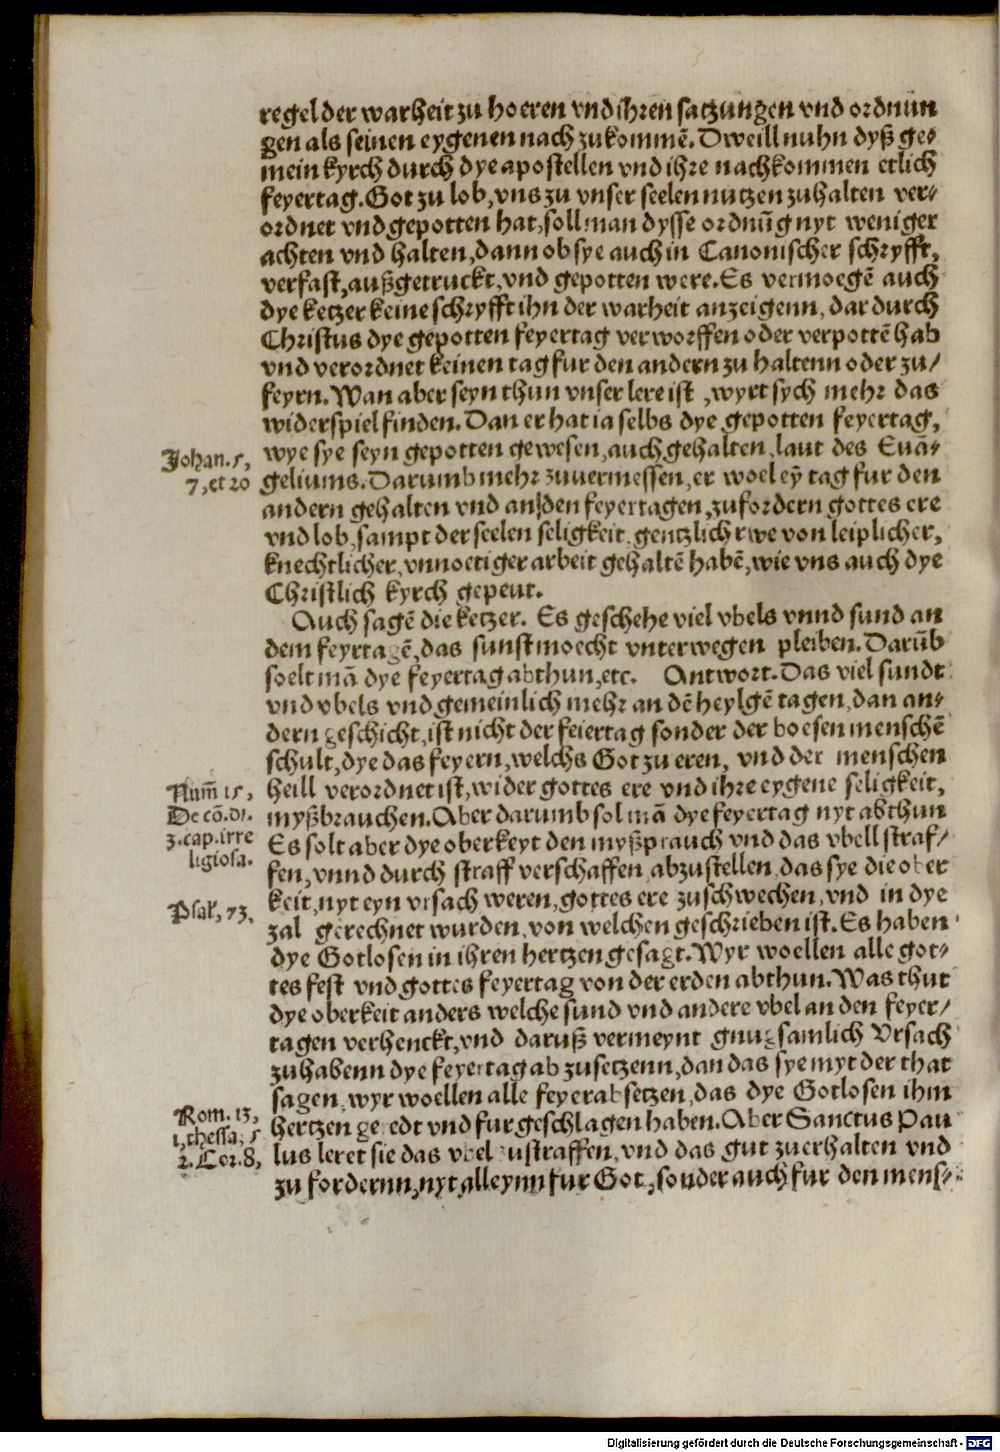 regel der warheit zu hoeren vnd ihren satzungen vnd ordnun
gen als seinen eygenen nach zukommẽ. Dweill nuhn dyß ge⸗
mein kyrch durch dye apostellen vnd ihre nachkommen etlich
feyertag. Got zu lob, vns zu vnser seelen nutzen zuhalten ver⸗
ordnet vnd gepotten hat, soll man dysse ordnũg nyt weniger
achten vnd halten, dann ob sye auch in Canonischer schryfft,
verfast, außgetruckt, vnd gepotten were. Es vermoegẽ auch
dye ketzer keine schryfft ihn der warheit anzeigenn, dar durch
Christus dye gepotten feyertag verworffen oder verpottẽ hab
vnd verordnet keinen tag fur den andern zu haltenn oder zu/
feyrn. Wan aber seyn thun vnser lere ist, wyrt sych mehr das
widerspiel finden. Dan er hat ia selbs dye gepotten feyertag,
Johan. 5, wye sye seyn gepotten gewesen, auch gehalten, laut des Euã⸗
7, et 20 geliums. Darumb mehr zuuermessen, er woel eỹ tag fur den
andern gehalten vnd an den feyertagen, zufordern gottes ere
vnd lob, sampt der seelen seligkeit, gentzlich rwe von leiplicher,
knechtlicher, vnnoetiger arbeit gehaltẽ habẽ, wie vns auch dye
Christlich kyrch gepeut.
Auch sagẽ die ketzer. Es geschehe viel vbels vnnd sund an
dem feyrtagẽ, das sunst moecht vnterwegen pleiben. Darũb
soelt mã dye feyertag abthun, etc. Antwort. Das viel sundt
vnd vbels vnd gemeinlich mehr an dẽ heylgẽ tagen, dan an⸗
dern geschicht, ist nicht der feiertag sonder der boesen menschẽ
schult, dye das feyern, welchs Got zu eren, vnd der menschen
Num̃ 15, heill verordnet ist, wider gottes ere vnd ihre eygene seligkeit,
De cõ. di. myßbrauchen. Aber darumb sol mã dye feyertag nyt abthun
3. cap. irre Es solt aber dye oberkeyt den myßprauch vnd das vbell straf⸗/
ligiosa. fen, vnnd durch straff verschaffen abzustellen, das sye die ober
Psal, 73, keit, nyt eyn vrsach weren, gottes ere zuschwechen, vnd in dye
zal gerechnet wurden, von welchen geschrieben ist. Es haben
dye Gotlosen in ihren hertzen gesagt. Wyr woellen alle got⸗
tes fest vnd gottes feyertag von der erden abthun. Was thut
dye oberkeit anders welche sund vnd andere vbel an den feyer/
tagen verhenckt, vnd daruß vermeynt gnugsamlich Vrsach
zuhabenn dye feyertag ab zusetzenn, dan das sye myt der that
sagen, wyr woellen alle feyer absetzen, das dye Gotlosen ihm
Rom. 13, hertzen geredt vnd furgeschlagen haben. Aber Sanctus Pau
1, thessa, 5 lus leret sie das vbel zustraffen, vnd das gut zuerhalten vnd
2. Cor. 8, zu fordernn, nyt alleynn fur Got, sonder auch fur den mens⸗
Digitalisierung gefördert durch die Deutsche Forschungsgemeinschaft - DFG